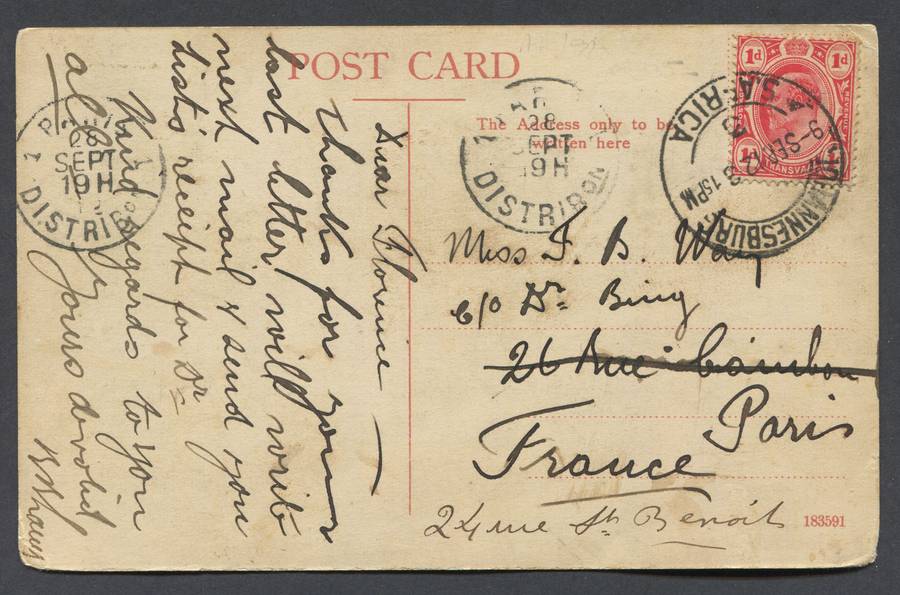 POST CARD
The Address only to be
written here
Dear Florence —
Thanks for your
last letter will write
next mail & send you
Lists receipt for Dr
Kind regards to you
all Yours devotid
Miss F. B. Way
c/o Dr Bing
26 Rue Cambon
Paris
France
24 rue St Benoit
183591
28
SEPT
19H
DISTRIBON
28
SEPT
19H
DISTRIBON
JOHANNESBURG
S. AFRICA
9 SEP
8 15PM
1d
1d
TRANSVAAL